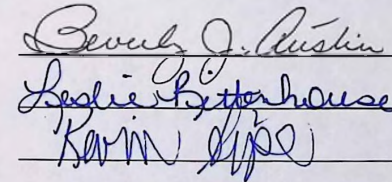 Beverly J. Austin
Leslie Rittenhouse
Kevin